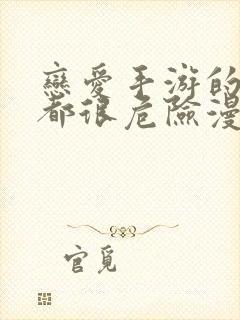 戀愛手游的
都很危險漫
官覓